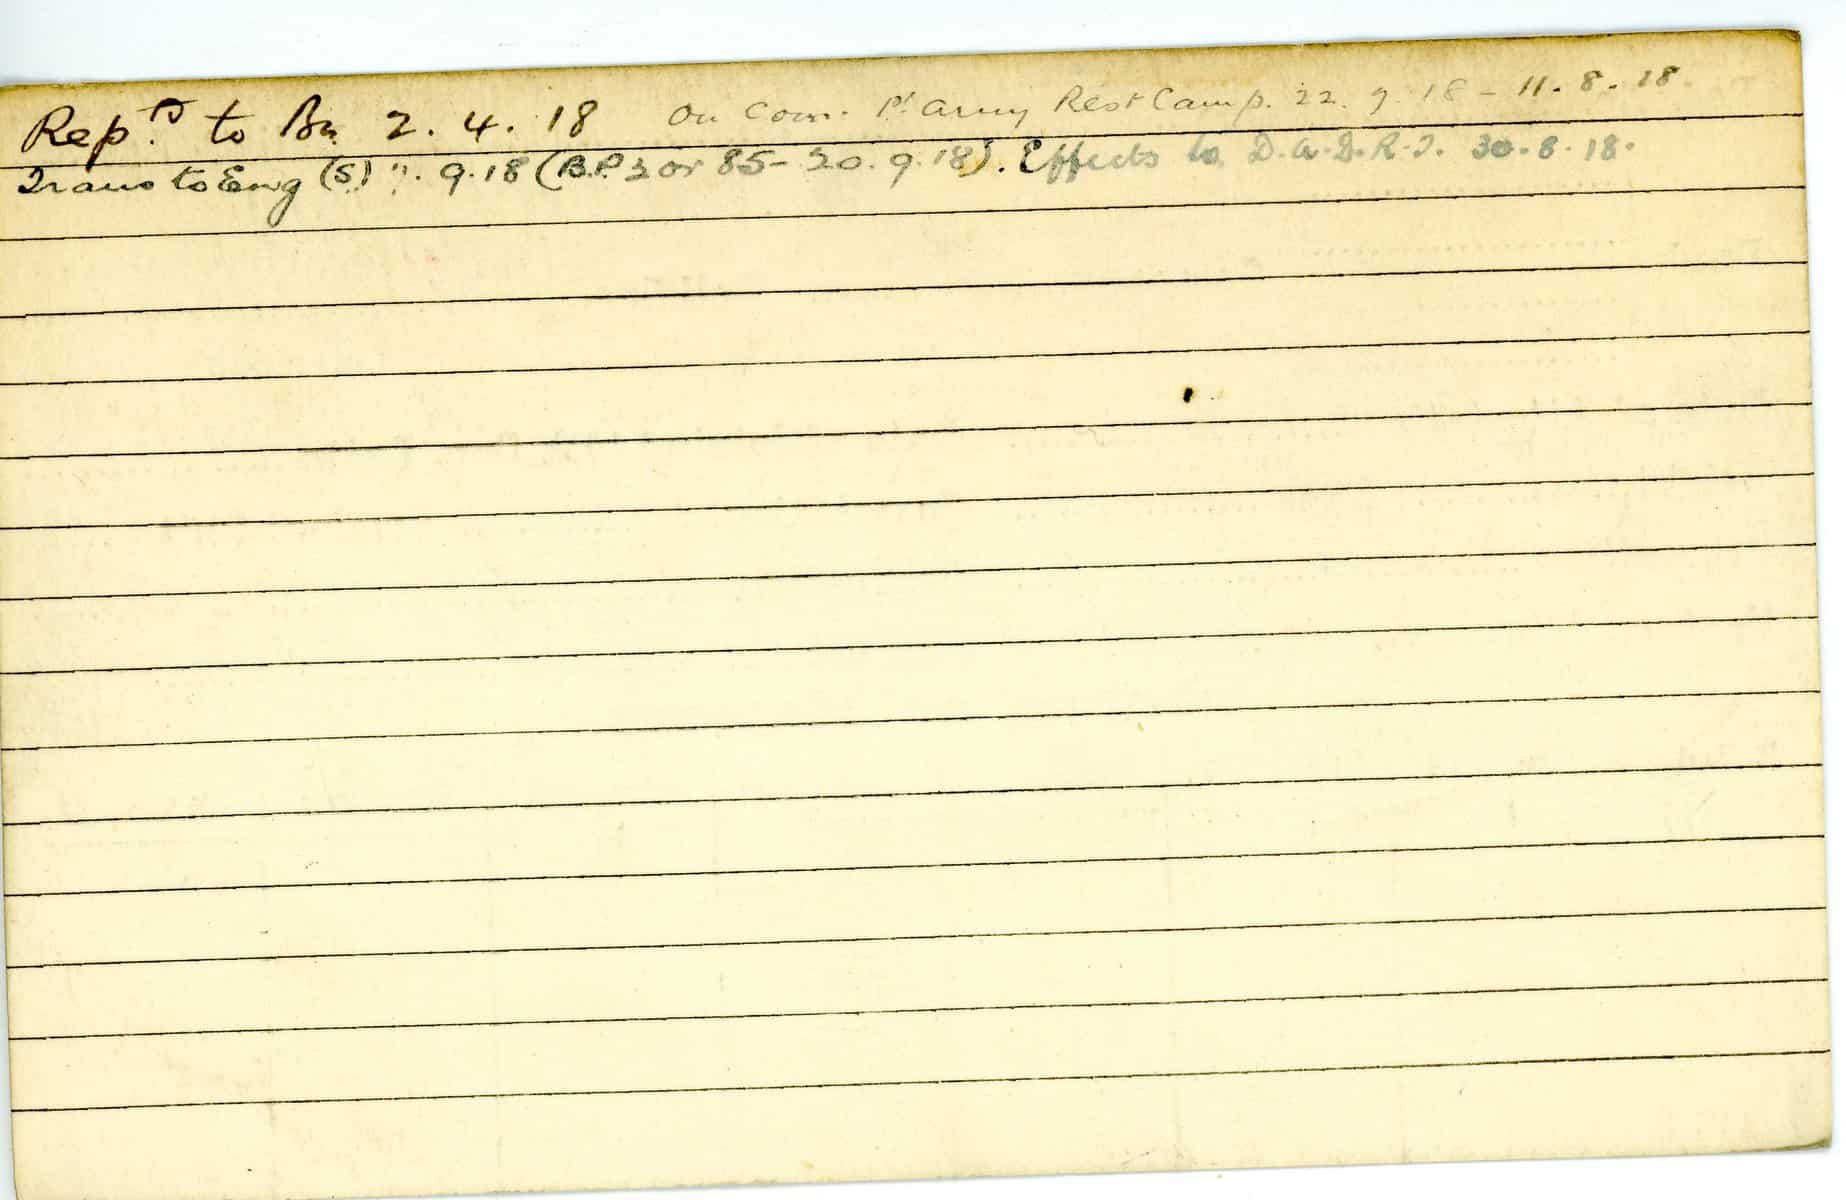 Rep.d to Bn 2.4.18 On Com. 1st Army Rest Camp. 22.7.18 - 11.8.18.
Trans to Eng (S) 9.18 (B.P. 2 or 85 - 20.9.18). Effects to D.A.D.R.T. 30.8.18.